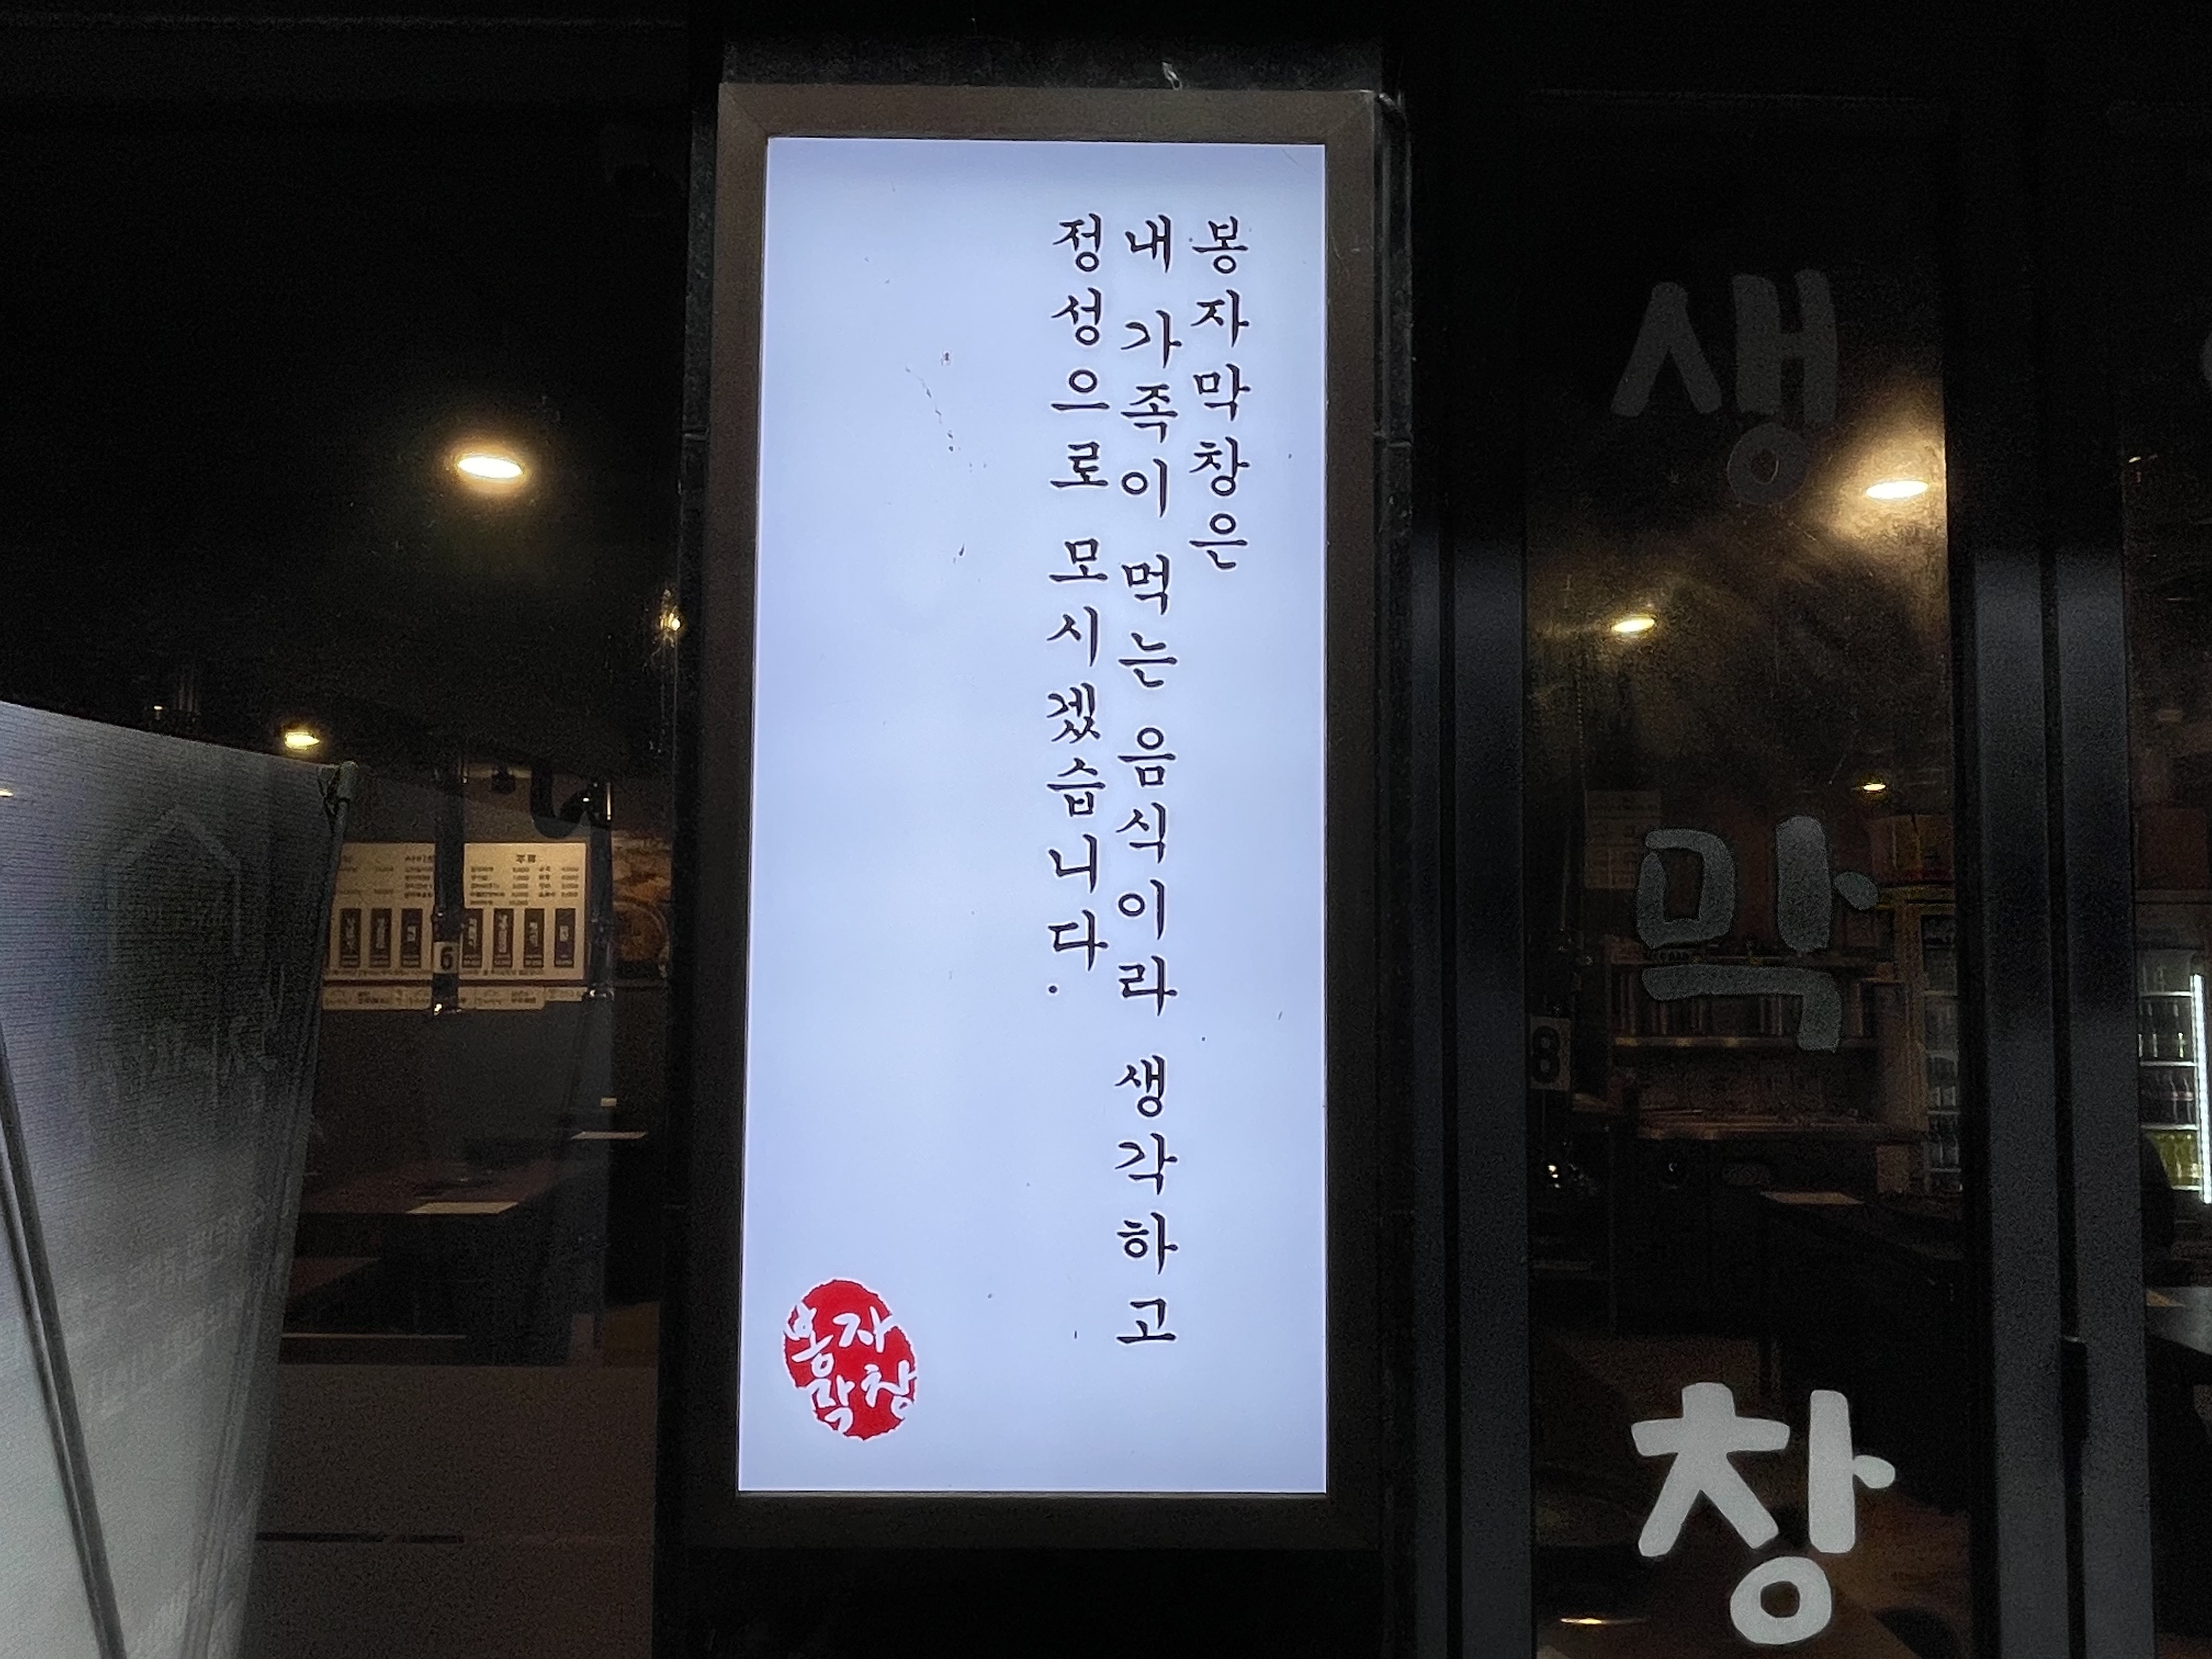 봉자막창은
내 가족이 먹는 음식이라 생각하고
정성으로 모시겠습니다.
봉자
막창
생막창
6
8